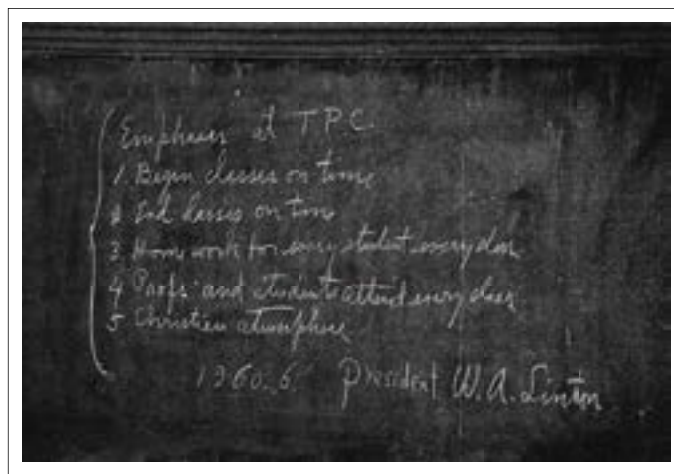 Emphases at T P C
1. Begin classes on time
2 End classes on time
3 Home work for every student every class
4 Profs and students attend every class
5 Christian atmosphere
1960. 6. President W. A. Linton